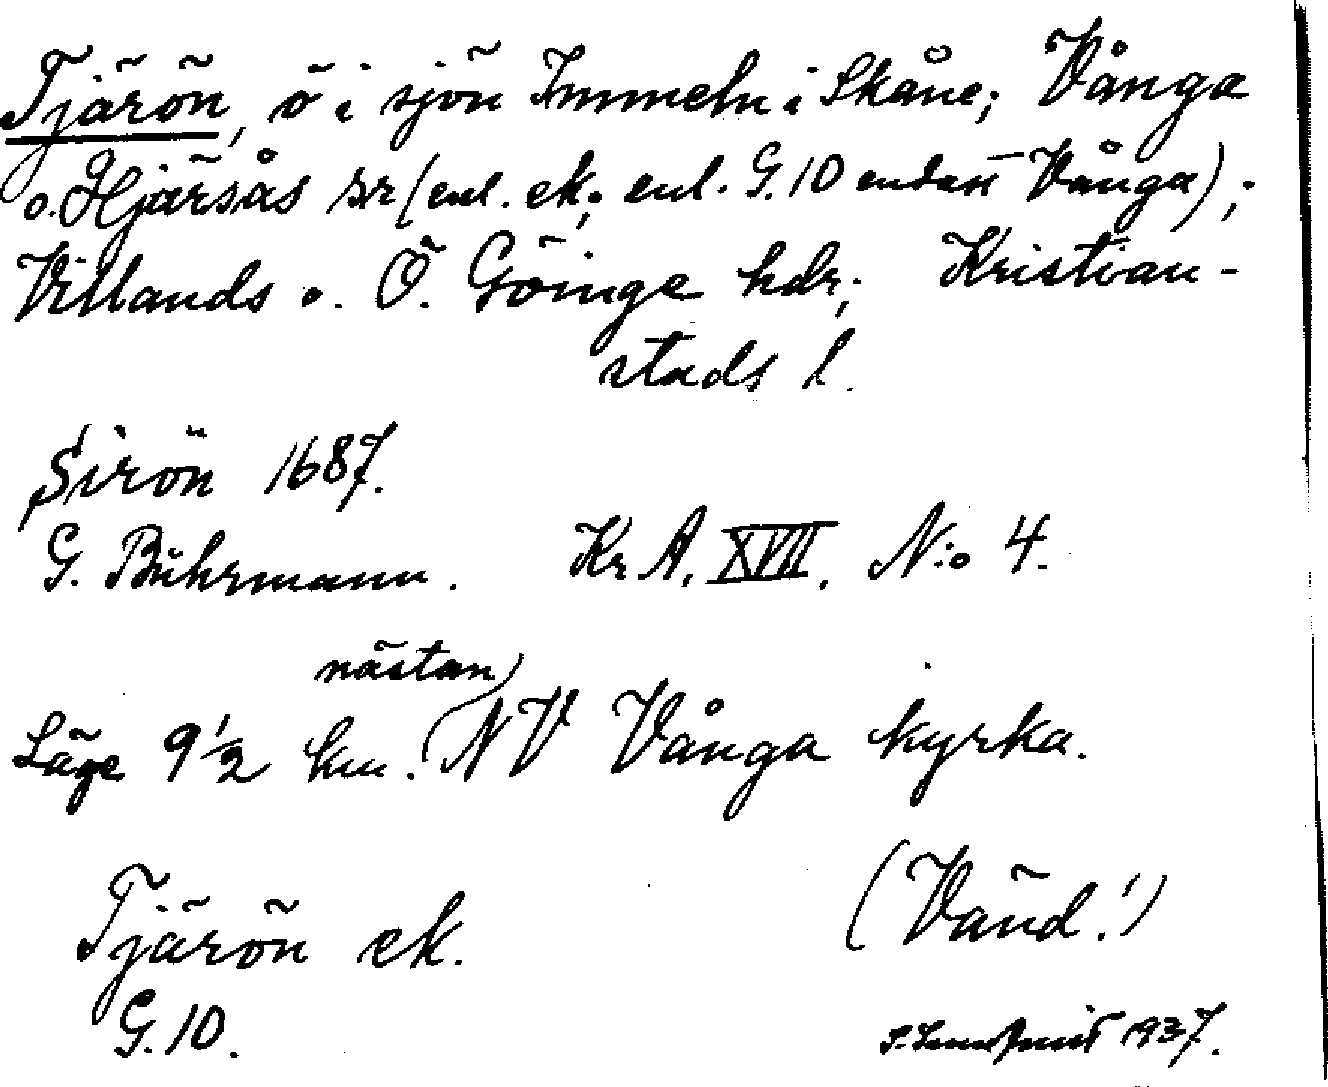 Tjärön, ö i sjön Immeln i Skåne; Vånga
o. Hjärsås sr (enl. ek; enl. G. 10 endast Vånga);
Villands o. Ö. Göinge hdr; Kristian-
stads l.
Sirön 1687.
G. Bührmann. Kr A. XVII. N:o 4.
nästan
Läge 9 1/2 km. NV Vånga kyrka.
Tjärön ek.
(Vänd!)
G. 10.
1937.